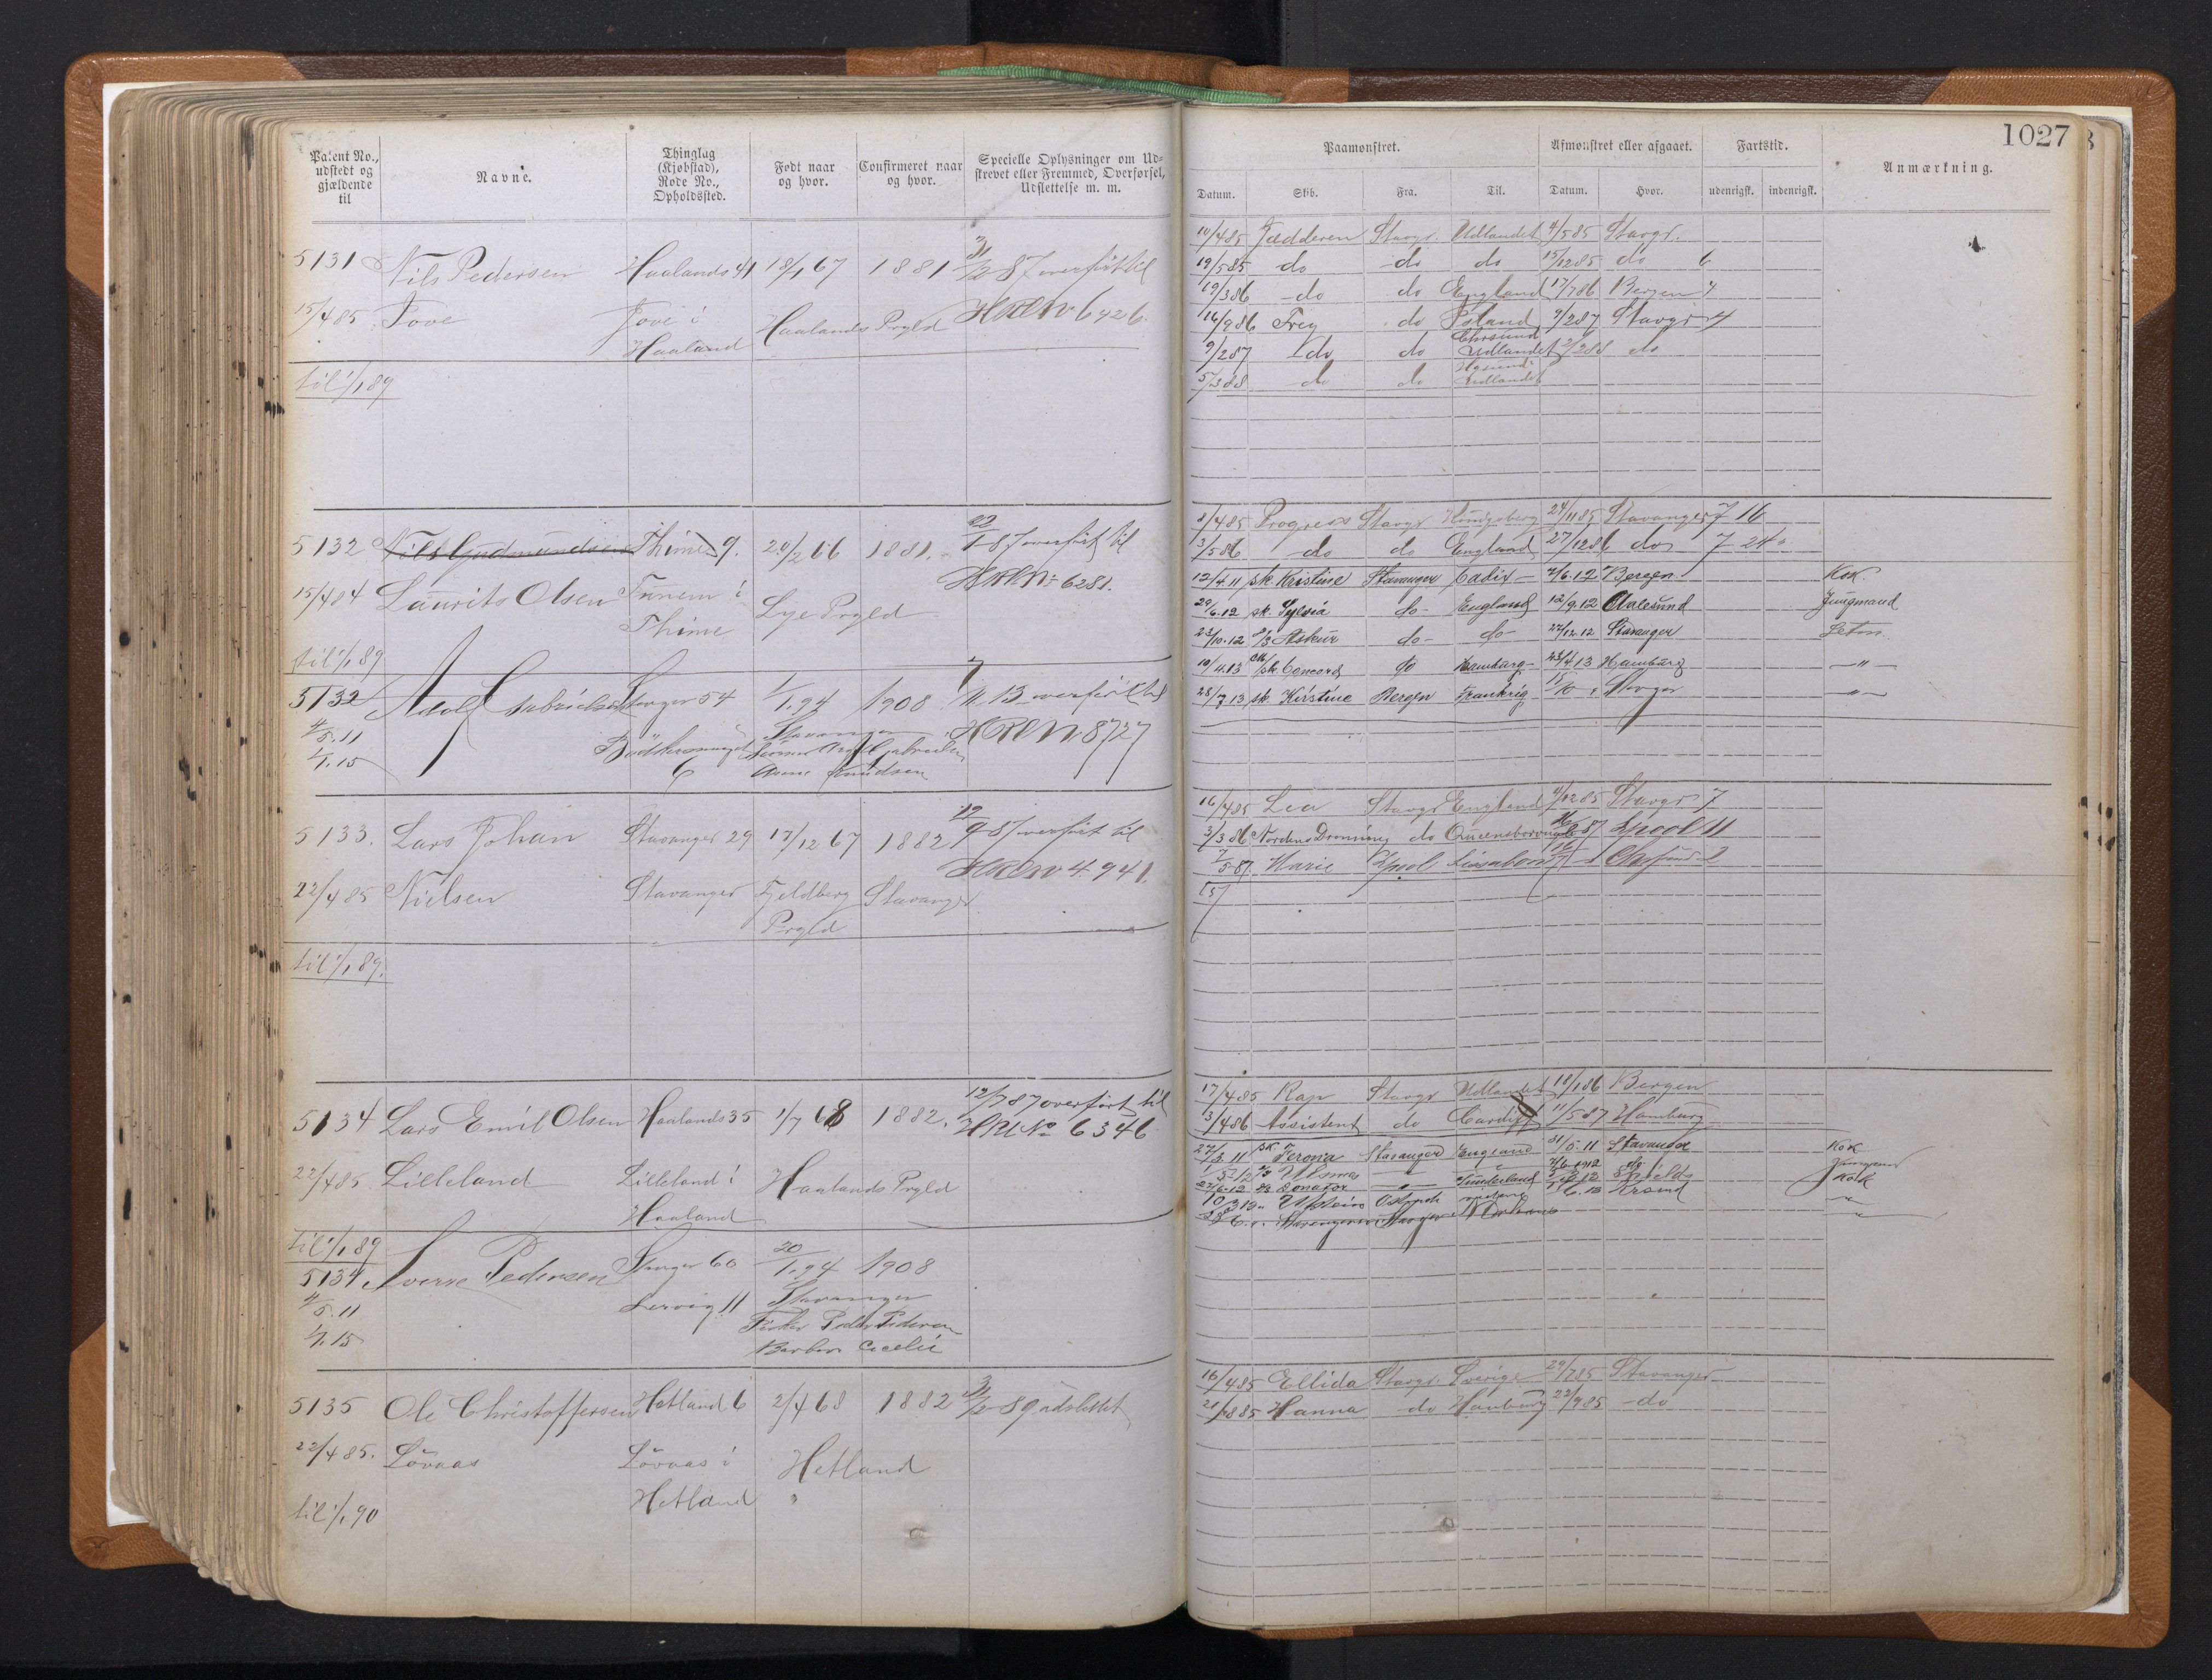 1027
Patent No., udstedt og gjældende til
Navne.
Thinglag (Kjøbstad), Rode No., Opholdssted.
Født naar og hvor.
Confirmeret naar og hvor.
Specielle Oplysninger om Udskrevet eller Fremmed, Overførsel, Udslettelse m. m.
Paamønstret.
Afmønstret eller afgaaet.
Fartstid.
Anmærkning.
Datum. Skib. Fra. Til. Datum. Hvor. udenrigsk. indenrigsk.
5131 Nils Pedersen Haalands 41 18/1 67 1881 overført til
15/4 85 Tove Tove i Haaland Haalands Prgld 6426.
til 1/1 89
10/4 85 Jædderen Stavgr. Udlandet 4/5 85 Stavgr.
19/5 85 do do do 15/12 85 do 6
19/3 86 do do England 17/7 86 Bergen 4
16/9 86 Frey do Island 9/2 87 Stavgr 4
9/2 87 do do Chrsund Udlandet 2/2 88 do
5/3 88 do do Udlandet
5132 Nils Gudmundsen Thime 9. 20/2 66 1881. overført til
15/4 84 Laurits Olsen Tunem i Thime Lye Prgld 6281.
til 1/1 89
8/4 85 Progress Stavgr 24/11 85 Stavanger 7 16
3/5 86 do do England 27/12 86 do 7 24
12/4 11 sk. Kristine Stavanger Cadix 2/6.12 Bergen Kok.
29/6.12 sk. Sylvia do England 12/9.12 Aalesund Jungmand
23/10.12 do do 22/12.12 Stavanger
10/4.13 Concord do Hamburg 23/4 13 Hamburg "
28/7.13 sk. Kirstine Bergen Frankrig Stavgr "
5132 Adolf Gabrielsen Stavgr 54 1/1.94 1908 overført til
4/5.11 Stavanger 8727
1/1.15 6 Gabrielsen
Knudsen
5133. Lars Johan Stavanger 29 17/12 67 1882 overført til
22/4 85 Nielsen Stavanger Fjeldberg Prgld Stavanger 4.941.
til 1/1 89.
16/4 85 Lea Stavgr England 4/12 85 Stavgr 7
3/3 86 Nordens Dronning do Queensborough 87 Lpool 11
7/5 87 Marie Lpool Lissabon
5134 Lars Emil Olsen Haalands 35 1/7 68 1882. 12/7 87 overført til
22/4 85. Lilleland Lilleland i Haaland Haalands Prgld No 6346
til 1/1 89
17/4 85 Rap Stavgr Udlandet 18/1 86 Bergen
3/4 86 Assistent do Cardiff 11/5 87 Hamburg
27/3 11 sk Verona Stavanger England 31/5 11 Stavanger Kok
Sunderland Shields Kok
5134. Sverre Pedersen Stavgr 60 20/1.94 1908
4/5.11 Lervig 11 Stavanger
1/1.15 Peder Pedersen
5135 Ole Christoffersen Hetland 6 2/4 68 1882 89 udslettet
22/4 85. Løvaas Løvaas i Hetland Hetland
til 1/1 90
16/4 85 Ellida Stavgr Sverige 29/7 85 Stavanger
21/8 85 Hanna do Hamburg 22/9 85 do